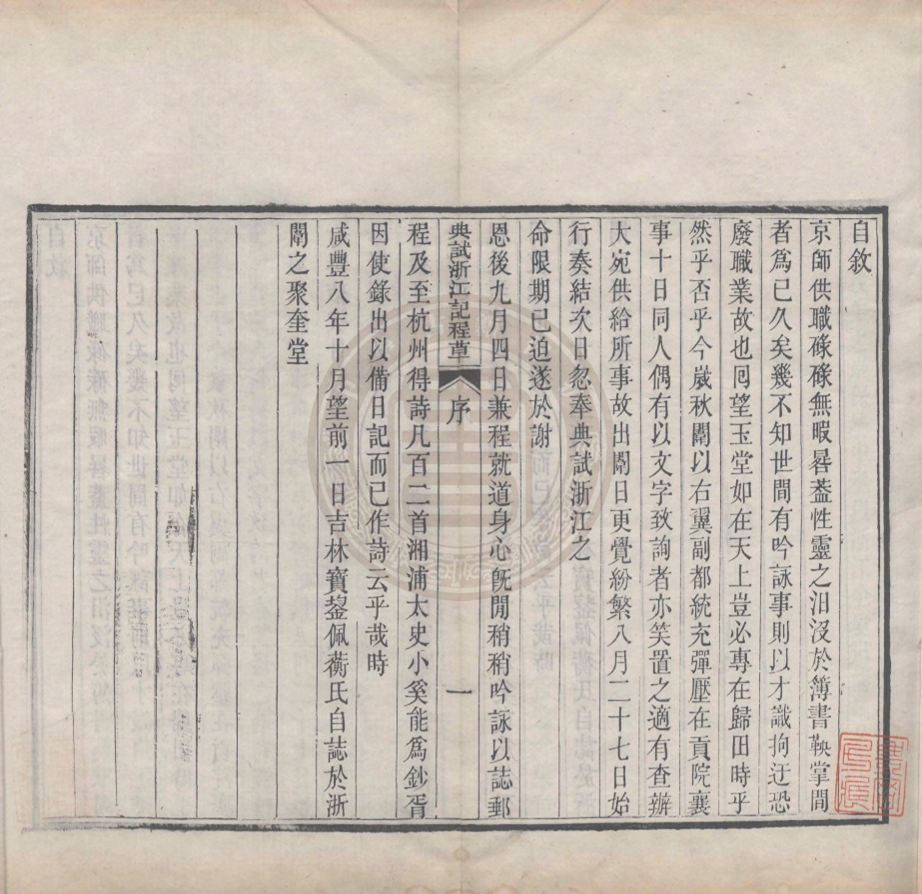 自敘
京師供職碌碌無暇晷葢性靈之汨沒於簿書鞅掌間
者爲已久矣幾不知世間有吟詠事則以才識拘迂恐
廢職業故也囘望玉堂如在天上豈必專在歸田時乎
然乎否乎今歲秋闈以右翼副都統充彈壓在貢院襄
事十日同人偶有以文字致詢者亦笑置之適有查辦
大宛供給所事故出闈日更覺紛繁八月二十七日始
行奏結次日忽奉典試浙江之
命限期已迫遂於謝
恩後九月四日兼程就道身心旣閒稍稍吟詠以誌郵
典試浙江記程草 序 一
程及至杭州得詩凡百二首湘浦太史小奚能爲鈔胥
因使錄出以備日記而已作詩云乎哉時
咸豐八年十月望前一日吉林寶鋆佩蘅氏自誌於浙
闈之聚奎堂